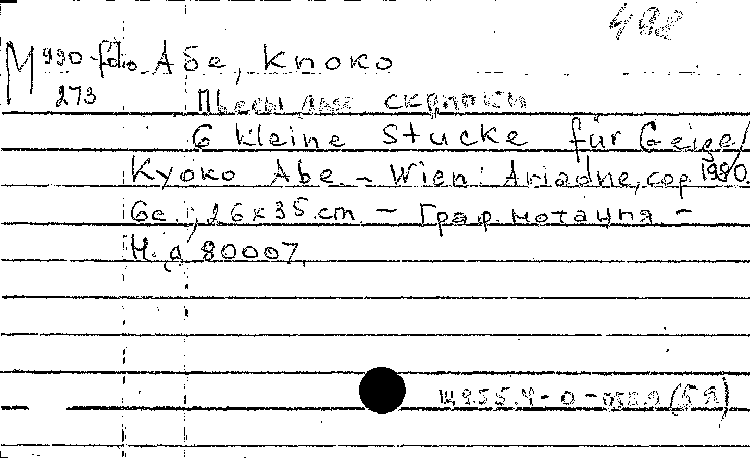 М 990-folio Абе, Киоко
273
Пьесы для скрипки
6 kleine Stucke für Geige/
Kyoko Abe. - Wien: Ariadne, cop 1980.
6с., 26x35 cm. - Граф. нотация. -
Н. д. 80007.
Щ955.4-0-